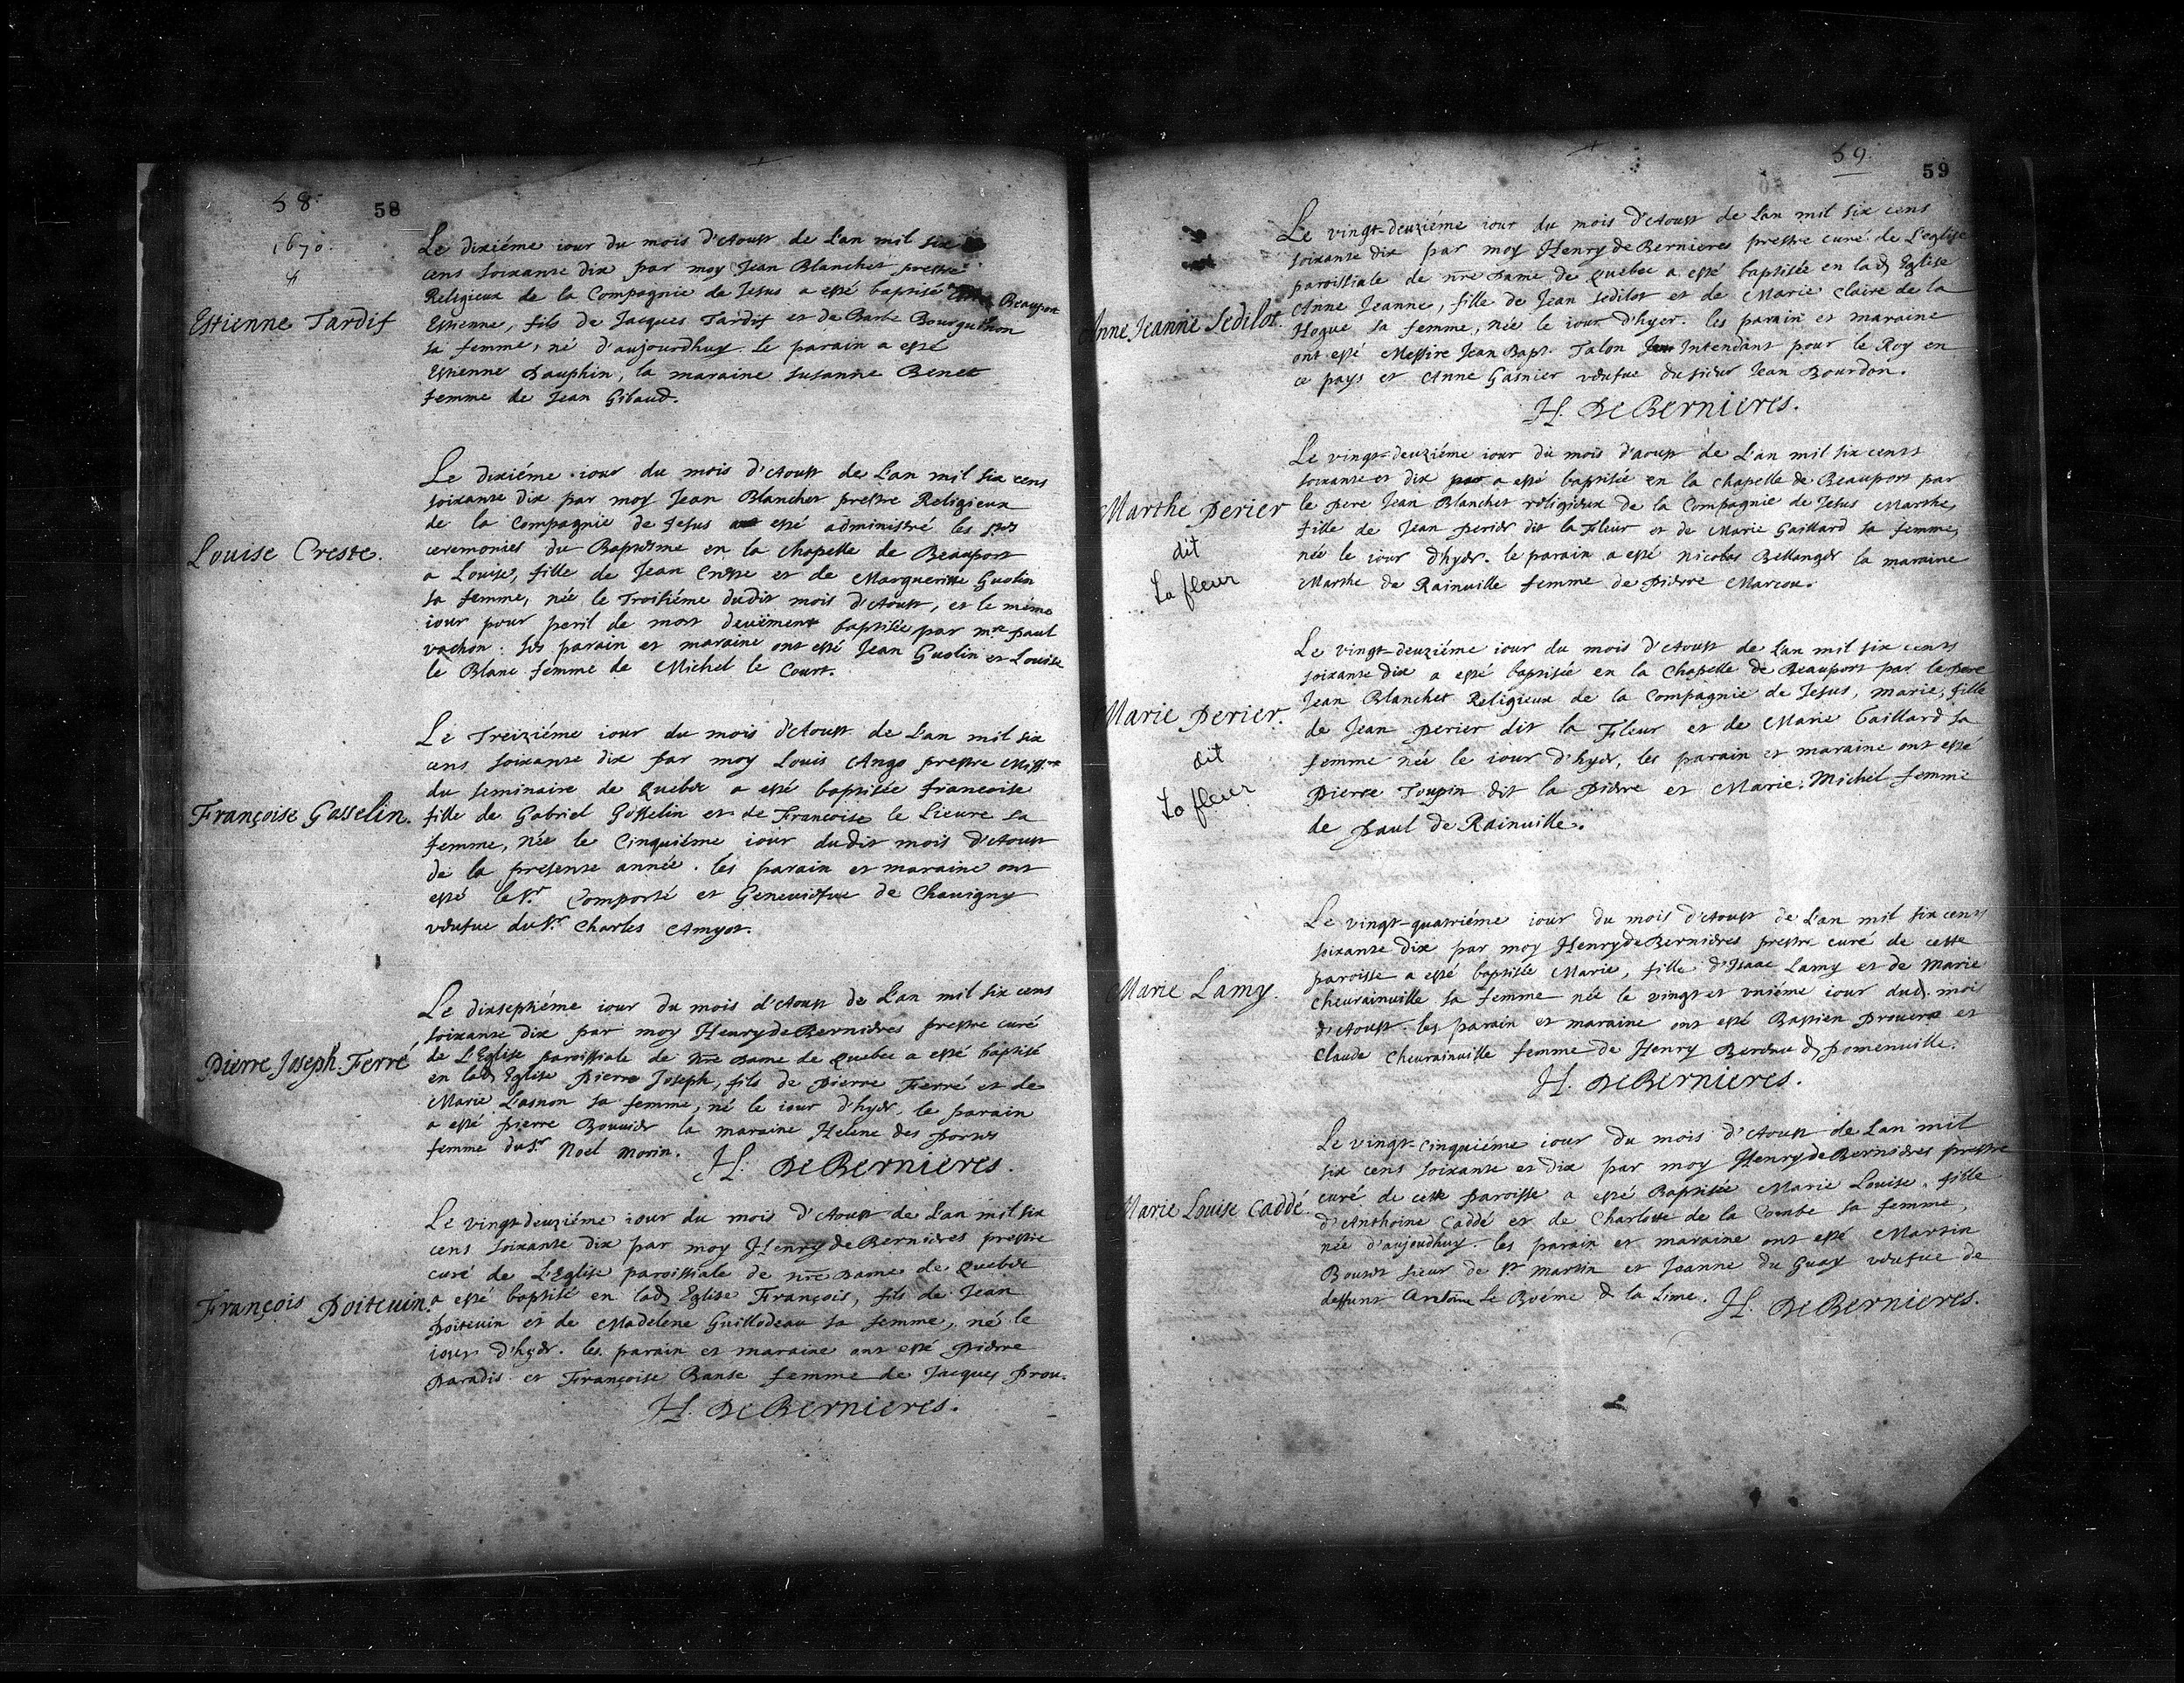 58.
58
1670.
Estienne Tardif
Le dixiéme iour du mois d'Aoust de l'an mil six
cens soixante dix par moy Jean Blanchet prestre
Religieux de la Compagnie de Jesus a esté baptisé Beauport
Estienne, fils de Jacques Tardif et de Barbe Bourguthon
sa femme, né d'aujourdhuy. Le parain a esté
Estienne Dauphin, la maraine Susanne Benet
femme de Jean Gibaud.
Louise Creste.
Le dixiéme iour du mois d'Aoust de L'an mil six cens
soixante dix par moy Jean Blanchet prestre Religieux
de la Compagnie de Jesus esté administré les
ceremonies du Baptesme en la chapelle de Beauport
a Louise, fille de Jean Creste et de Margueritte Guolin
sa femme, née le Troisiéme dudit mois d'Aoust, et le méme
iour pour peril de mort deuëment baptisée par mre paul
vachon. Ses parain et maraine ont esté Jean Guolin et Louise
le Blanc femme de Michel le Court.
Françoise Gasselin.
Le Treiziéme iour du mois d'Aoust de L'an mil six
cens soixante dix par moy Louis Ango prestre Missre
du seminaire de Quebec a esté baptisée francoise
fille de Gabriel Gosselin et de Francoise le Lieure sa
femme, née le Cinquiéme iour dudit mois d'Aoust
de la presente année. les parain et maraine ont
esté le Sr. Comporté et Geneuiefue de Chauigny
veufue du Sr. Charles Amyot.
Pierre Joseph. Ferré
Le dixseptiéme iour du mois d'Aoust de L'an mil six cens
soixante dix par moy Henry de Bernieres prestre curé
de L'Eglise paroissiale de nre Dame de Quebec a esté baptisé
en lad. Eglise Pierre Joseph, fils de Pierre Ferré et de
Marie Lasnon sa femme, né le iour d'hyer, le parain
a esté pierre Bouuier la maraine Helene des portes
femme du Sr. Noel Morin. H. De Bernieres.
François Poiteuin.
Le vingt-deuziéme iour du mois d'Aoust de L'an mil six
cens soixante dix par moy Henry de Bernieres prestre
curé de L'Eglise paroissiale de nre Dame de Quebec
a esté baptisé en lad. Eglise François, fils de Jean
Poiteuin et de Madelene Guillodeau sa femme, né le
iour d'hyer. les parain et maraine ont esté Pierre
Paradis et Françoise Banse femme de Jacques Prou.
H. De Bernieres.
59.
59
Anne Jeanne Sedilot.
Le vingt-deuziéme iour du mois d'Aoust de L'an mil six cens
soixante dix par moy Henry de Bernieres prestre curé de L'eglise
paroissiale de nre Dame de Quebec a esté baptisée en lad. Eglise
Anne Jeanne, fille de Jean Sedilot et de Marie Claire de la
Hogue sa femme, née le iour d'hyer. les parain et maraine
ont esté Messire Jean Bapt. Talon Intendant pour le Roy en
ce pays et Anne Gasnier veufue du sieur Jean Bourdon.
H. De Bernieres.
Marthe Perier
dit
La fleur
Le vingt-deuziéme iour du mois d'aoust de L'an mil six cents
soixante et dix par a esté baptisée en la chapelle de Beauport par
le pere Jean Blanchet religieux de la Compagnie de Jesus Marthe,
fille de Jean perier dit la fleur et de Marie Gaillard sa femme,
née le iour d'hyer. le parain a esté nicolas Bellanger la maraine
Marthe de Rainuille femme de Pierre Marcou.
Marie Perier.
dit
La fleur
Le vingt-deuziéme iour du mois d'Aoust de L'an mil six cents
soixante dix a esté baptisée en la Chapelle de Beauport par le pere
Jean Blanchet Religieux de la Compagnie de Jesus, marie, fille
de Jean perier dit la Fleur et de Marie Gaillard sa
femme née le iour d'hyer, les parain et maraine ont esté
Pierre Toupin dit la Pierre et Marie. Michel femme
de paul de Rainuille.
Marie Lamy.
Le vingt-quatriéme iour du mois d'Aoust de L'an mil six cents
soixante dix par moy Henry de Bernieres prestre curé de cette
paroisse a esté baptisée Marie, fille d'Isaac Lamy et de Marie
Cheurainuille sa femme née le vingt et vniéme iour dud. mois
d'Aoust. les parain et maraine ont esté Bastien Prouera et
Claude Cheurainuille femme de Henry d. Pomenuille.
H. De Bernieres.
Marie Louise Caddé.
Le vingt-cinquiéme iour du mois d'Aoust de L'an mil
six cens soixante et dix par moy Henry de Bernieres prestre
curé de cette paroisse a esté Baptisée Marie Louise, fille
d'Anthoine Caddé et de Charlotte de la Combe sa femme,
née d'aujoudhuy. les parain et maraine ont esté Martin
Boutet sieur de St. Martin et Jeanne du Guay veufue de
deffunt Antoine le Boéme d. la Lime. H. De Bernieres.